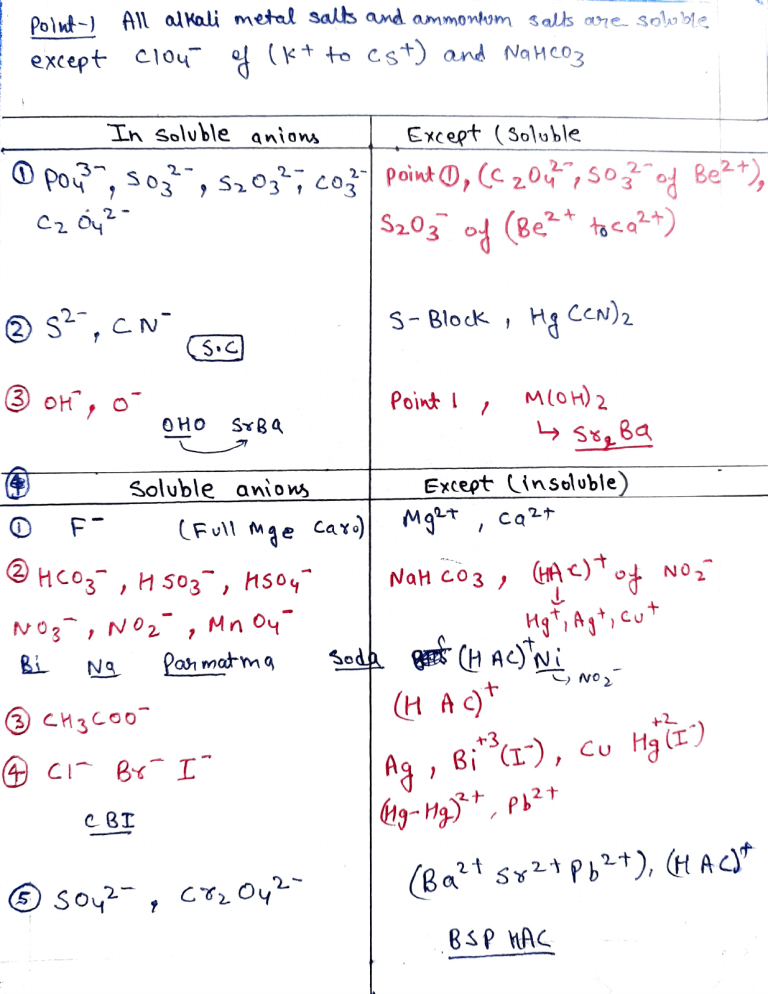 Point-1 All alkali metal salts and ammonium salts are soluble
except ClO4⁻ of (K+ to Cs+) and NaHCO3
In soluble anions
Except (Soluble
① PO4³⁻, SO3²⁻, S2O3²⁻, CO3²⁻
C2O4²⁻
point ①, (C2O4²⁻, SO3²⁻ of Be²⁺),
S2O3⁻ of (Be²⁺ to Ca²⁺)
② S²⁻, CN⁻
S.C
S-Block, Hg(CN)2
③ OH⁻, O⁻
OHO SrBa
Point 1, M(OH)2
↳ Sr, Ba
④ Soluble anions
Except (insoluble)
① F⁻ (Full Mge Caro)
Mg²⁺, Ca²⁺
② HCO3⁻, HSO3⁻, HSO4⁻
NaHCO3, (HAC)⁺ of NO2⁻
↓
NO3⁻, NO2⁻, MnO4⁻
Hg⁺, Ag⁺, Cu⁺
Bi Na Parmatma Soda (HAC)⁺Ni
↳ NO2⁻
③ CH3COO⁻
(H AC)⁺
④ Cl⁻ Br⁻ I⁻
Ag, Bi⁺³(I⁻), Cu Hg⁺²(I⁻)
(Hg-Hg)²⁺, Pb²⁺
CBI
⑤ SO4²⁻, Cr2O4²⁻
(Ba²⁺ Sr²⁺ Pb²⁺), (HAC)⁺
BSP HAC